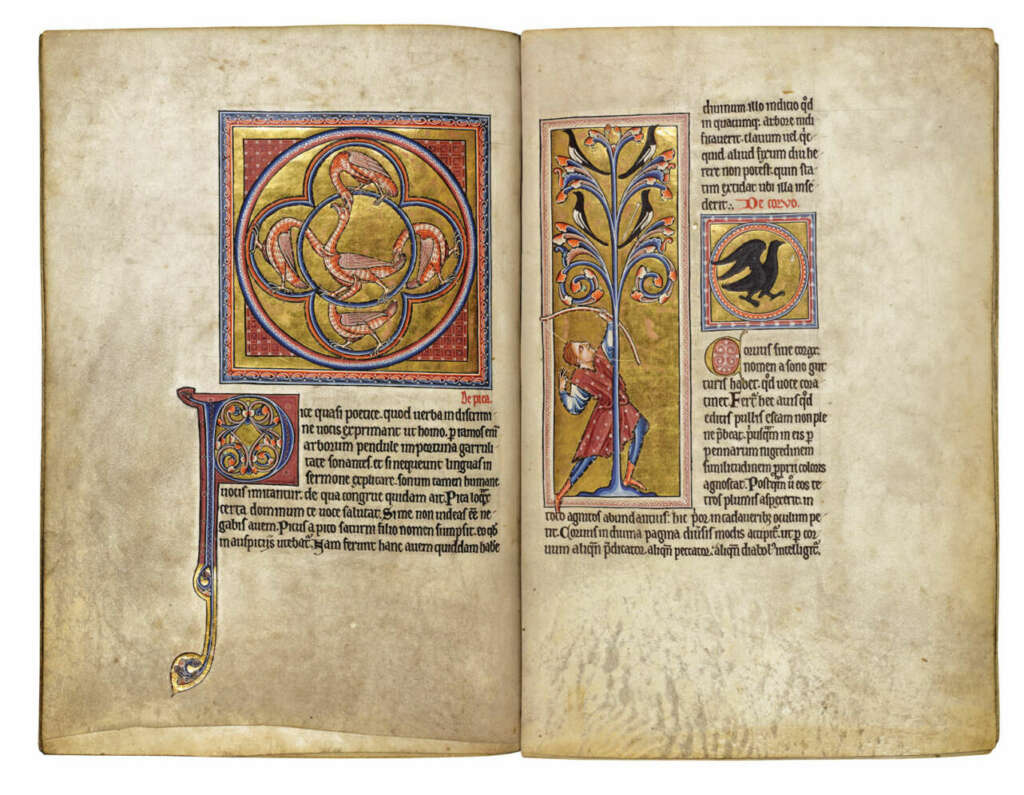 De pica.
Pice quasi poetice. quod uerba in discrimi
ne uocis exprimant ut homo. p ramos eni
arborum pendule importuna garruli
tate sonantes. et si nequeunt linguas in
sermone explicare. sonum tamen humane
uocis imitantur. de qua congrue quidam ait. Pica loqx
certa dominum te uoce salutat. Si me non uideas eē ne
gabis auem. Picus a pico saturni filio nomen sumpsit. eo qd
in auspicijs utebat. Nam ferunt hanc auem quiddam habe
diuinum illo indicio qd
in quacumq; arbore nidi
ficauerit. clauum uel qc
quid aliud fixum diu he
rere non potest. quin sta
tim excidat ubi illa inse
derit. De coruo.
Coruus siue corax
nomen a sono gut
turis habet. qd uoce cora
cinet. Fert hec auis qd
editis pullis escam non ple
ne pbeat. pusqm in eis p
pennarum nigredinem
similitudinem pprii coloris
agnoscat. Postqm u eos te
tros plumis aspexerit. in
toto agnitos abundantius. hic por in cadaueribz oculum pe
tit. Coruus in diuina pagina diuisis modis accipit. ut p cor
uum aliqn pdicator. aliqn peccator. aliqn diabols intelligit.